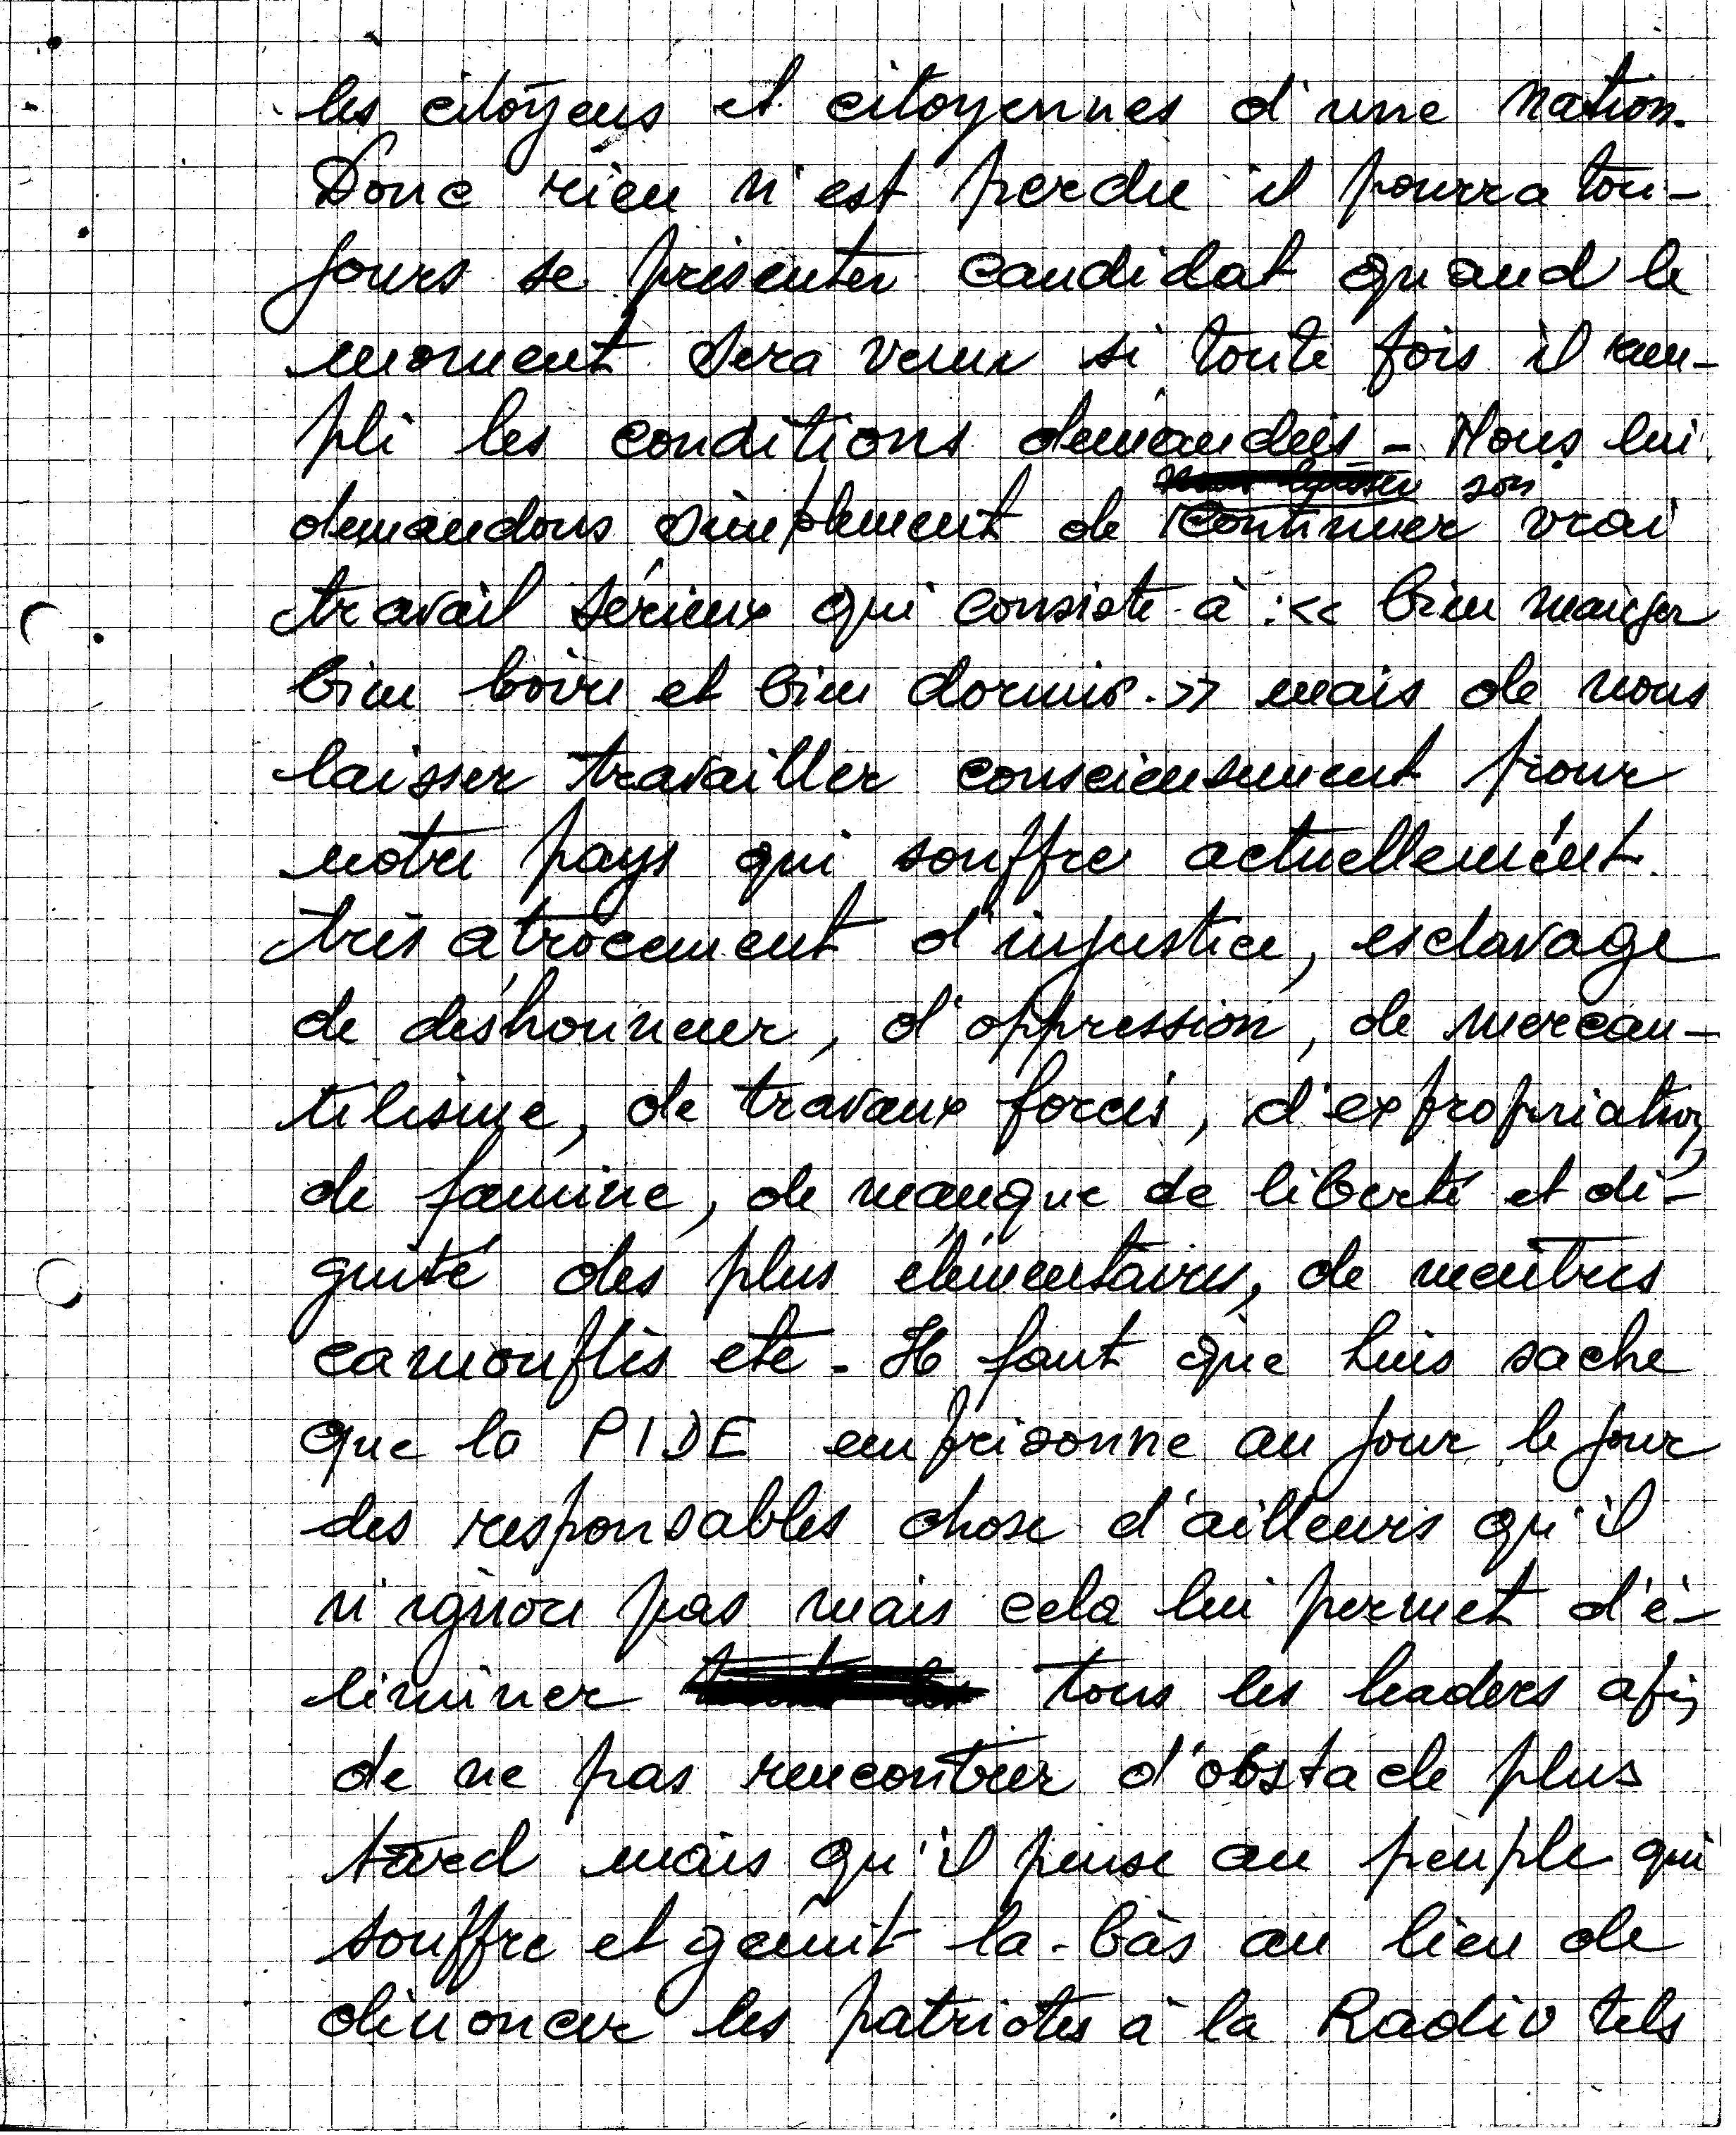 les citoyens et citoyennes d'une nation.
Donc rien n'est perdu il pourra tou-
jours se présenter candidat quand le
moment sera venu si toute fois il rem-
pli les conditions demandées - Nous lui
son
demandons simplement de continuer vrai
travail sérieux qui consiste à : << bien manger
bien boire et bien dormir. >> mais de nous
laisser travailler consciensement pour
notre pays qui souffre actuellement
très atrocement d'injustice, esclavage
de déshonneur, d'oppression, de mercan-
tilisme, de travaux forcés, d'expropriation,
de famine, de manque de liberté et di-
gnité des plus élémentaires, de meutres
camouflés etc. Il faut que Luis sache
que la PIDE emprisonne au jour le jour
des responsables chose d'ailleurs qu'il
n'ignore pas mais cela lui permet d'é-
liminer tous les leaders afin
de ne pas rencontrer d'obstacle plus
tard mais qu'il pense au peuple qui
souffre et gémit la-bàs au lieu de
dénoncer les patriotes à la Radio tels